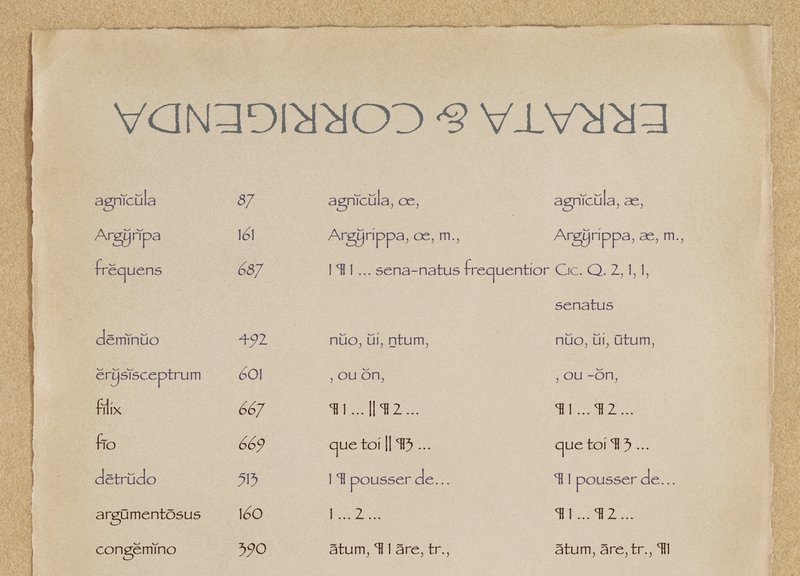 ERRATA & CORRIGENDA
agnĭcŭla 87 agnĭcŭla, œ, agnĭcŭla, æ,
Argy̆rĭpa 161 Argy̆rippa, œ, m., Argy̆rippa, æ, m.,
frĕquens 687 1 ¶ 1 ... sena-natus frequentior Cic. Q. 2, 1, 1,
senatus
dēmĭnŭo 492 nŭo, ŭi, n̲tum, nŭo, ŭi, ūtum,
ĕry̆sĭsceptrum 601 , ou ŏn, , ou -ŏn,
fĭlix 667 ¶ 1 ... || ¶ 2 ... ¶ 1 ... ¶ 2 ...
fīo 669 que toi || ¶3 ... que toi ¶ 3 ...
dētrŭdo 513 1 ¶ pousser de... ¶ 1 pousser de...
argūmentōsus 160 1 ... 2 ... ¶ 1 ... ¶ 2 ...
congĕmĭno 390 ātum, ¶ 1 āre, tr., ātum, āre, tr., ¶1